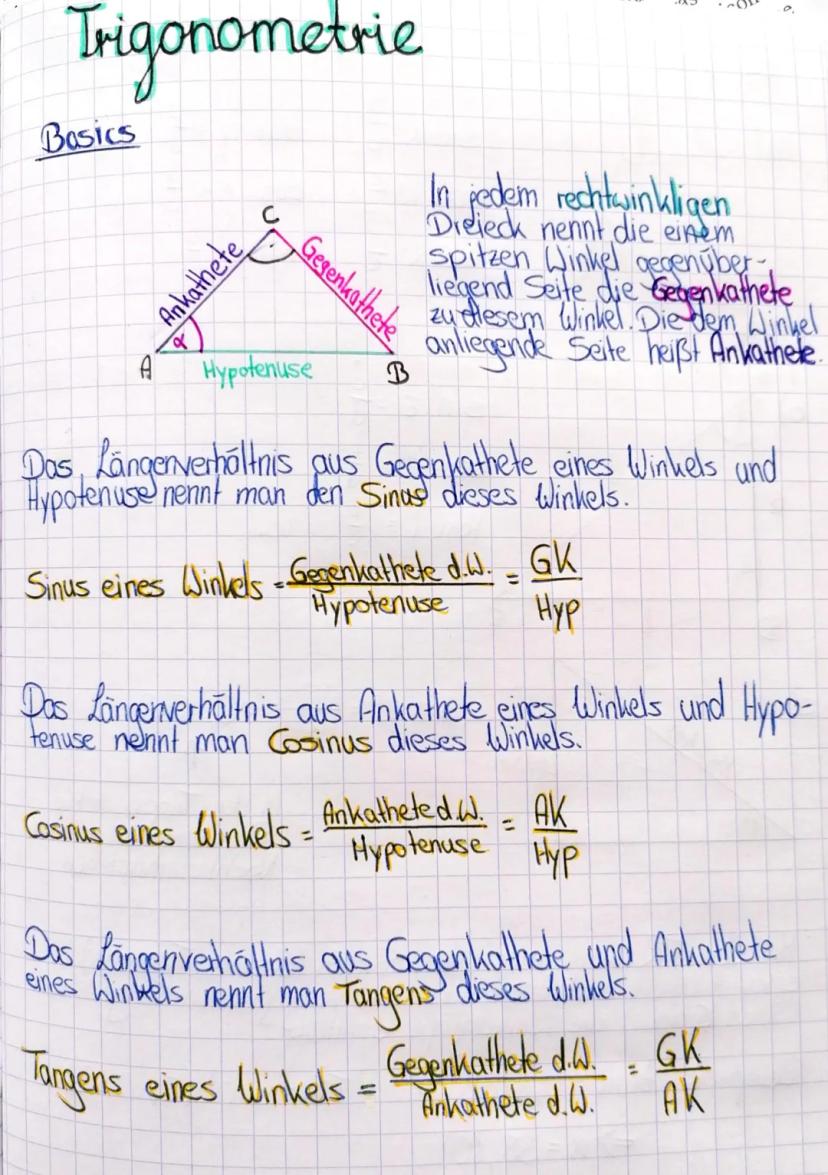 Trigonometrie
Basics
C
Ankathete
Gegenkathete
α
A
Hypotenuse
B
In jedem rechtwinkligen
Dreieck nennt die einem
spitzen Winkel gegenüber-
liegend Seite die Gegenkathete
zu diesem Winkel. Die dem Winkel
anliegende Seite heißt Ankathete.
Das Längenverhältnis aus Gegenkathete eines Winkels und
Hypotenuse nennt man den Sinus dieses Winkels.
Sinus eines Winkels = Gegenkathete d.W. / Hypotenuse = GK / Hyp
Das Längenverhältnis aus Ankathete eines Winkels und Hypo-
tenuse nennt man Cosinus dieses Winkels.
Cosinus eines Winkels = Ankathete d.W. / Hypotenuse = AK / Hyp
Das Längenverhältnis aus Gegenkathete und Ankathete
eines Winkels nennt man Tangens dieses Winkels.
Tangens eines Winkels = Gegenkathete d.W. / Ankathete d.W. = GK / AK